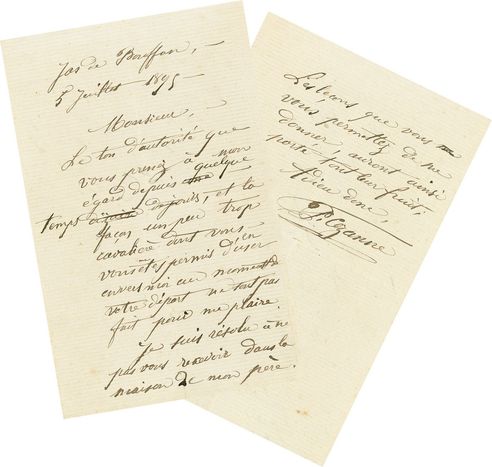 Jas de Bouffan, —
5 Juillet 1895 —
Monsieur, —
Le ton d'autorité que
vous prenez à mon
égard depuis quelque
temps et la
façon un peu trop
cavalière dont vous
vous êtes permis d'en
envers moi au moment de
votre départ ne sont pas
fait pour me plaire.
Je suis résolu à ne
pas vous recevoir dans la
maison de mon père.
Les leçons que vous
vous permettez de me
donner, auront ainsi
porté tout leur fruit,
adieu donc,
P. Cezanne